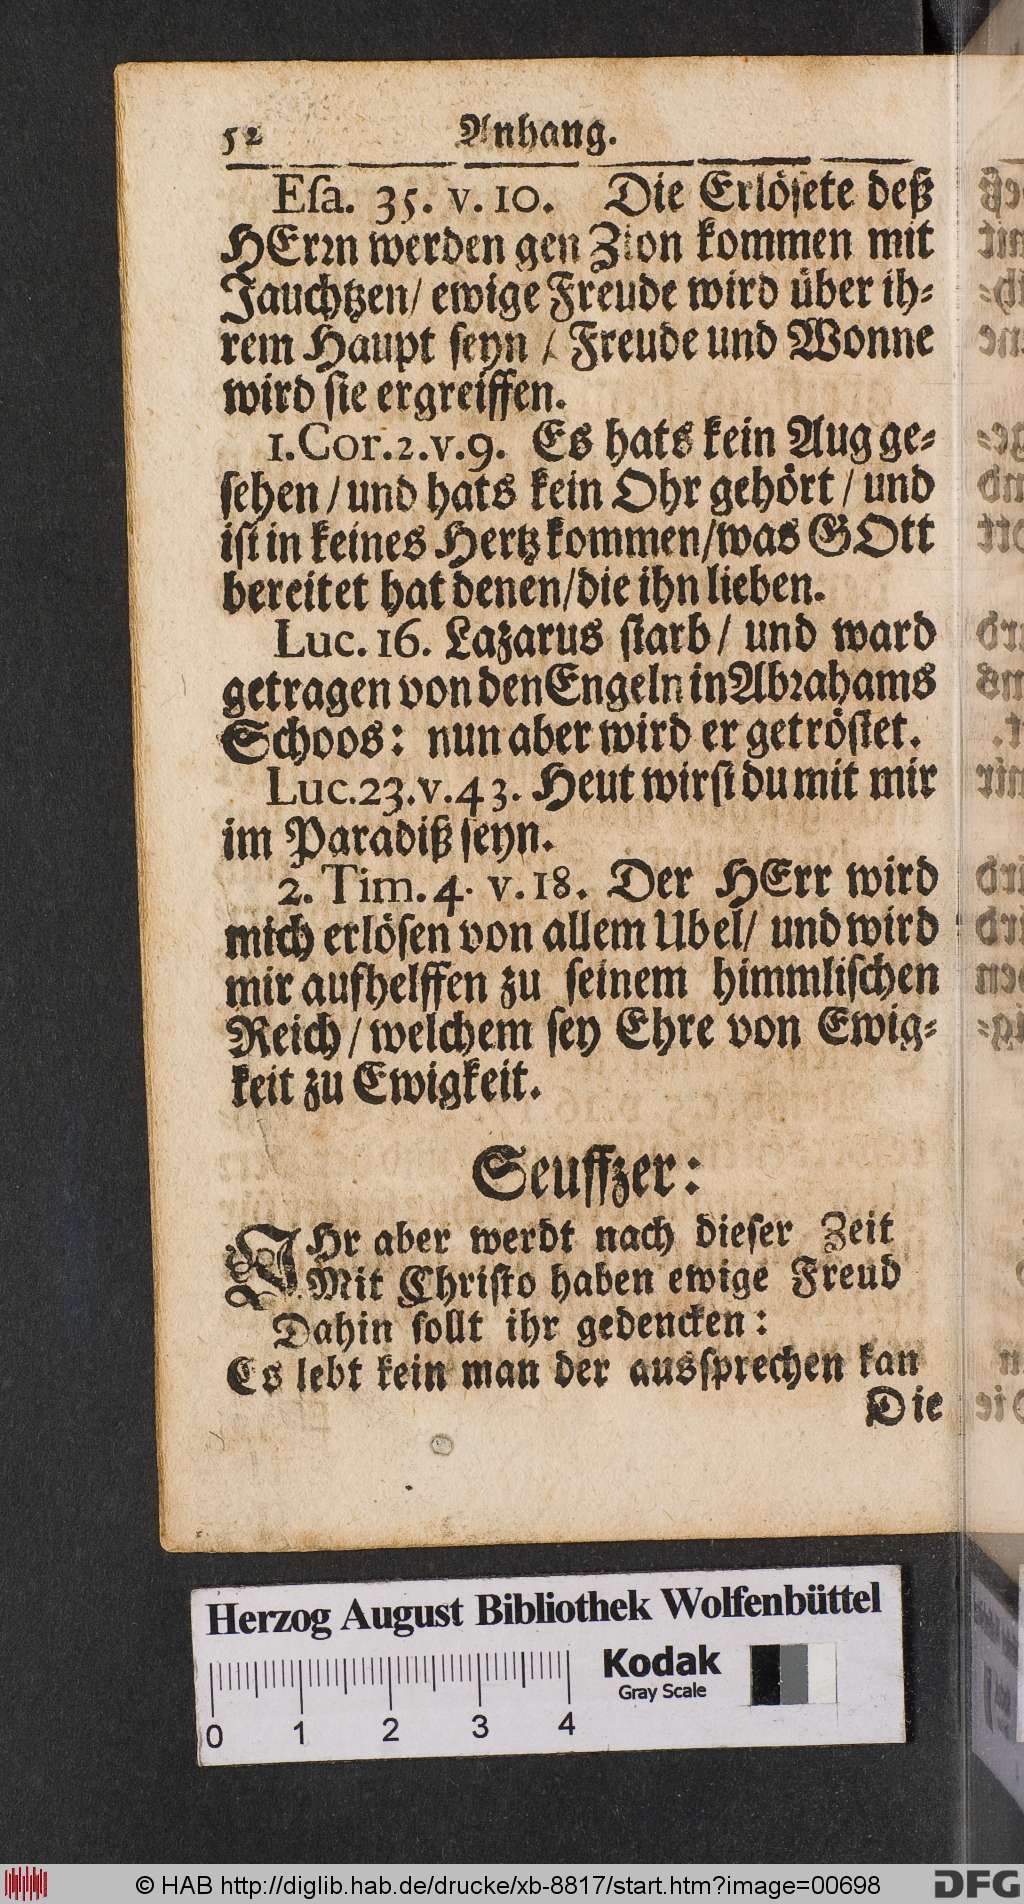 52 Anhang.
Eſa. 35. v. 10. Die Erlöſete deß
HErꝛn werden gen Zion kommen mit
Jauchtzen/ ewige Freude wird über ih⸗
rem Haupt ſeyn / Freude und Wonne
wird ſie ergreiffen.
1. Cor. 2. v. 9. Es hats kein Aug ge⸗
ſehen / und hats kein Ohr gehört / und
iſt in keines Hertz kommen/was GOtt
bereitet hat denen/die ihn lieben.
Luc. 16. Lazarus ſtarb/ und ward
getragen von den Engeln in Abꝛahams
Schoos: nun aber wird er getröſtet.
Luc. 23. v. 43. Heut wirſt du mit mir
im Paradiß ſeyn.
2. Tim. 4. v. 18. Der HErr wird
mich erlöſen von allem Ubel/ und wird
mir aufhelffen zu ſeinem himmliſchen
Reich / welchem ſey Ehre von Ewig⸗
keit zu Ewigkeit.
Seuffzer:
IHr aber werdt nach dieſer Zeit
Mit Chriſto haben ewige Freud
Dahin ſollt ihr gedencken:
Es lebt kein man der ausſprechen kan
Die
Herzog August Bibliothek Wolfenbüttel
Kodak
Gray Scale
0 1 2 3 4
© HAB http://diglib.hab.de/drucke/xb-8817/start.htm?image=00698
DFG